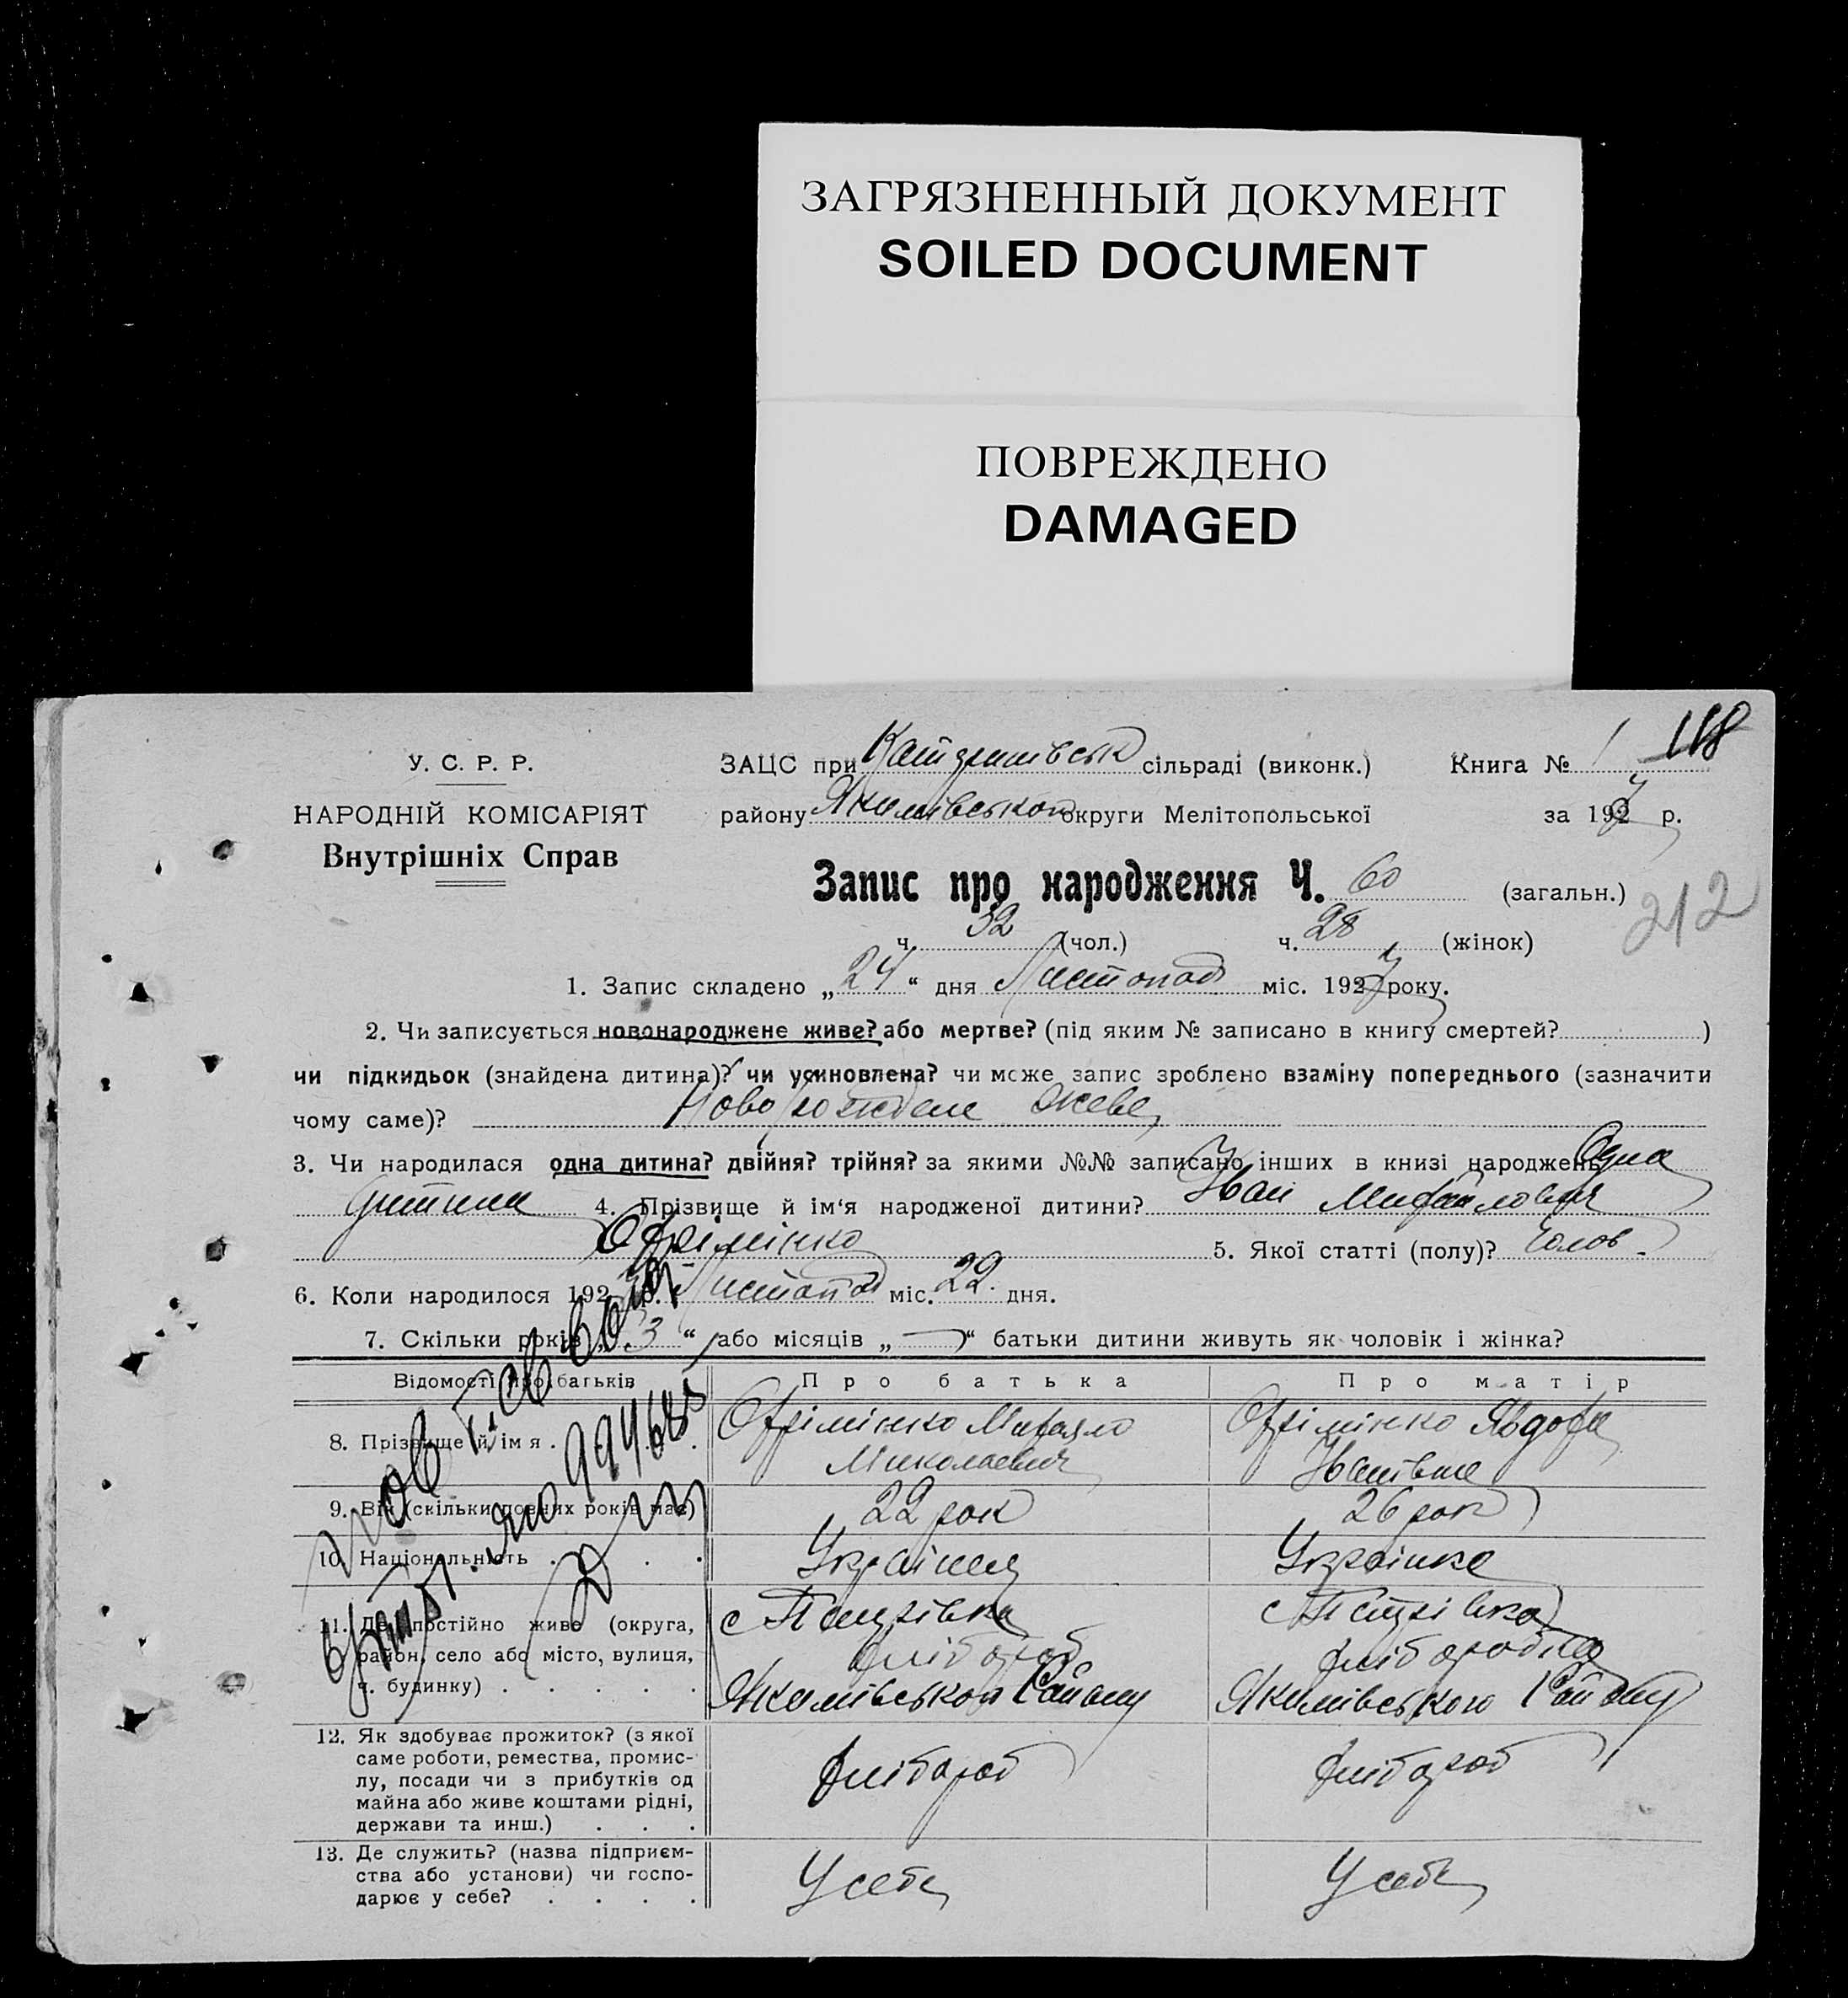 ЗАГРЯЗНЕННЫЙ ДОКУМЕНТ
SOILED DOCUMENT
ПОВРЕЖДЕНО
DAMAGED
118
У. С. Р. Р.
НАРОДНІЙ КОМІСАРІЯТ
Внутрішніх Справ
ЗАЦС при сільраді (виконк.) Книга № 1
району Якимівського округи Мелітопольської за 1927 р.
Запис про народження Ч. 60 (загальн.)
212
ч. 32 (чол.) ч. 28 (жінок)
1. Запис складено „24“ дня Листопад міс. 1927 року.
2. Чи записується новонароджене живе? або мертве? (під яким № записано в книгу смертей? )
чи підкидьок (знайдена дитина)? чи усиновлена? чи може запис зроблено взаміну попереднього (зазначити
чому саме)? живе
3. Чи народилася одна дитина? двійня? трійня? за якими №№ записано інших в книзі народжень Одна
дитина 4. Прізвище й ім'я народженої дитини? Іван Михайлович
Охрімінко 5. Якої статті (полу)? Чолов.
6. Коли народилося 192 р. Листопад міс. 22 дня.
7. Скільки років „3“ або місяців „—“ батьки дитини живуть як чоловік і жінка?
Відомості про батьків Про батька Про матір
8. Прізвище й ім я . Охрімінко Михаяло Миколаевич Охрімінко Явдоха Іванівна
9. Вік (скільки повних років має) 22 рок 26 рок
10. Національність . . . . Українец Українка
11. Де постійно живе (округа, район, село або місто, вулиця, ч. будинку) . . . . . Якимівського Району Якимівського Району
12. Як здобуває прожиток? (з якої саме роботи, ремества, промислу, посади чи з прибутків од майна або живе коштами рідні, держави та инш.) . . . хлібороб хлібороб
13. Де служить? (назва підприємства або установи) чи господарює у себе? . . . . У себе У себе